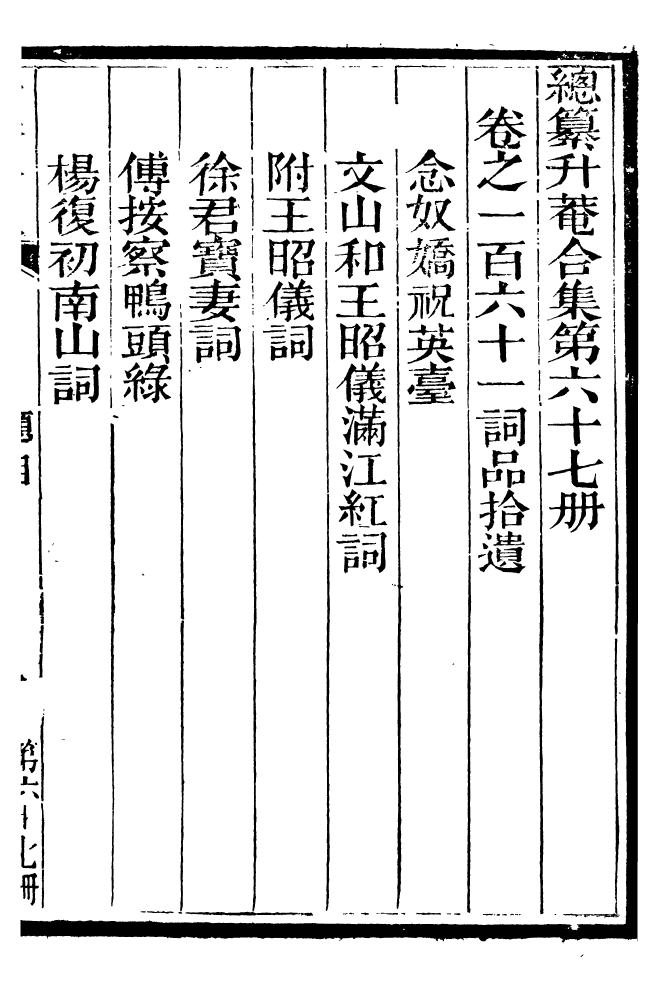 總纂升菴合集第六十七册
卷之一百六十一詞品拾遺
念奴嬌祝英臺
文山和王昭儀滿江紅詞
附王昭儀詞
徐君寶妻詞
傅按察鴨頭綠
楊復初南山詞
題目
第六十七册